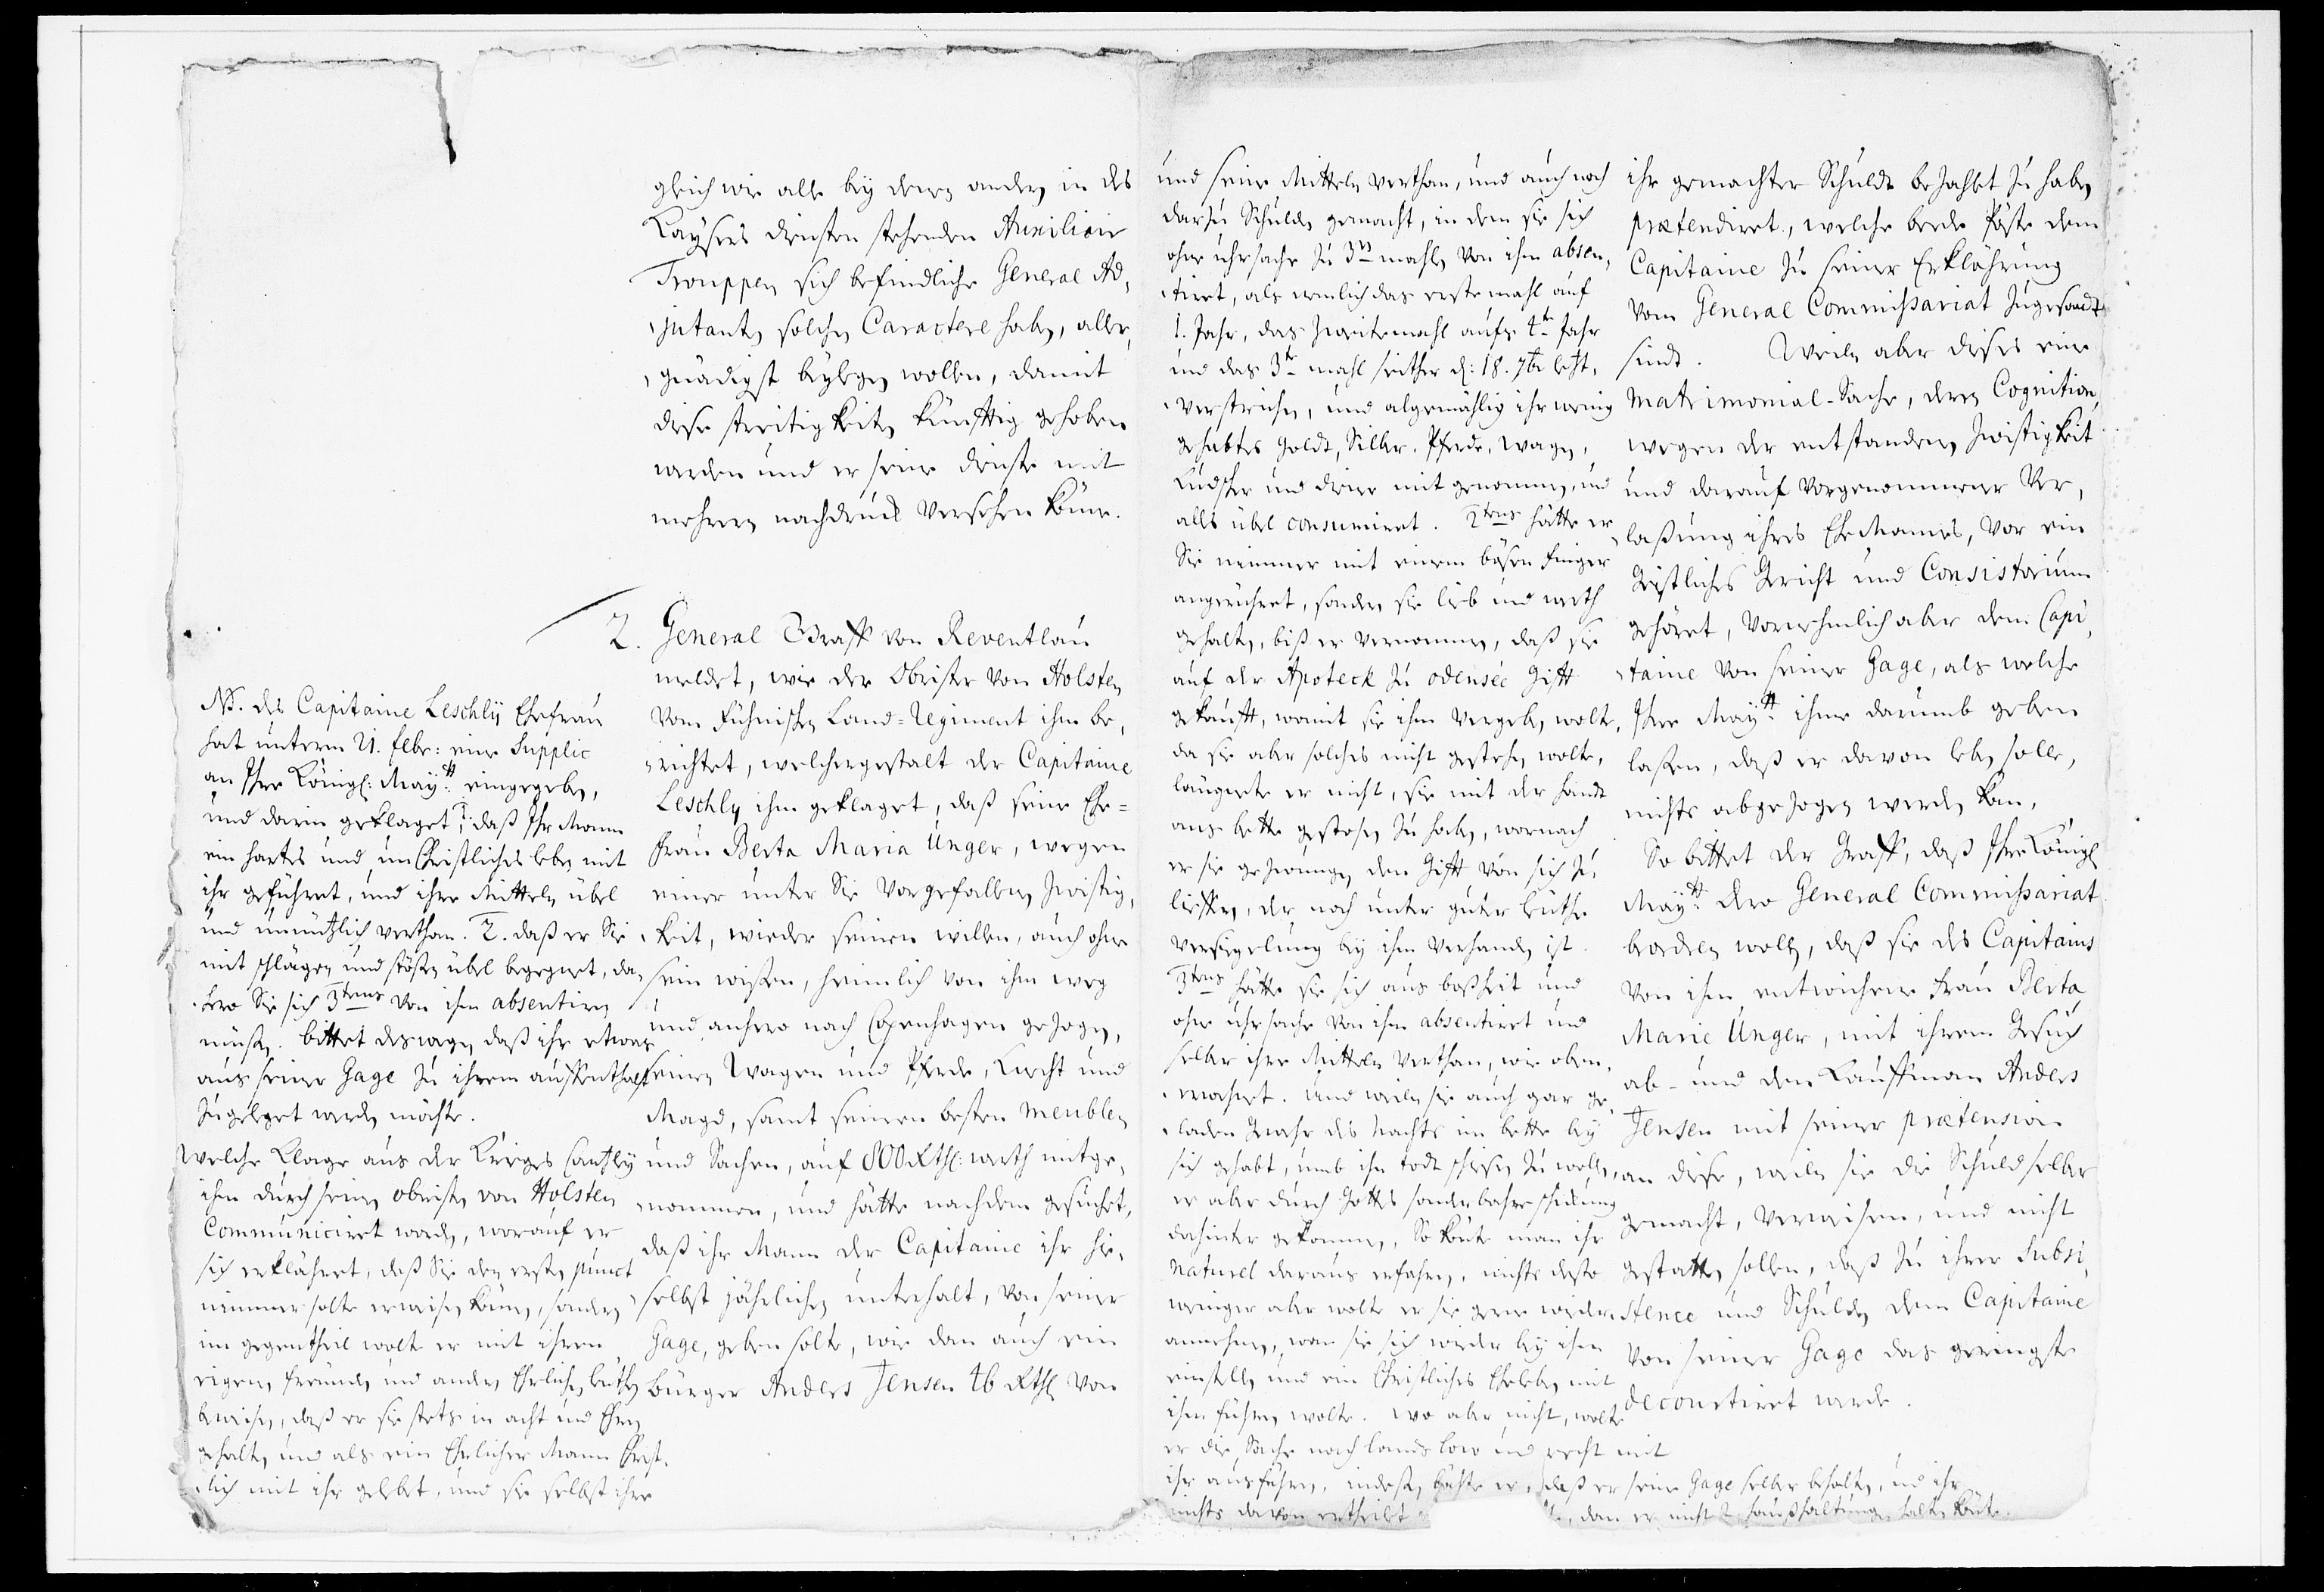 gleich wie alle bey denen andern in des
Kaysers diensten stehenden Auxiliair
Trouppen sich befindliche General Ad,
jutanten solchen Caractere haben, aller,
gnädigst beylegen wollen, damit
diese streitigkeiten künfftig gehoben
werden und er seine dienste mit
mehrern nachdruck versehen könne.
2. General Graff von Reventlau
meldet, wie der Obrister von Holsten
vom Fühnischen Land-Regiment ihm be,
richtet, welchergestalt der Capitaine
Leschly ihm geklaget, daß seine Ehe-
frau Berta Maria Unger, wegen
einer unter Sie vorgefallenen zwistig,
keit, wieder seinen willen, auch ohne
sein wißen, heimlich von ihm weg
und anhero nach Copenhagen gezogen,
seinen Wagen und Pferde, Knecht und
Magd, samt seinen besten meublen
und Sachen, auf 800 Rthl: werth mitge,
nommen, und hätte nachdem gesuchet,
daß ihr Mann der Capitaine ihr hie,
selbst jährlichen unterhalt, von seiner
Gage, geben solte, wie dan auch ein
bürger Anders Jensen 46 Rthl von
NB. des Capitaine Leschly Ehefrau
hat unterm 21. febr: eine Supplic
an Ihre Königl: Maytt: eingegeben,
und darin geklaget, 1: daß Ihr Mann
ein hartes und unChristliches leben mit
ihr geführet, und ihre Mitteln übel
und unnützlich verthan. 2. daß er Sie
mit schlägen und stößen übel begegnet, da,
hero Sie sich 3tens von ihm absentiren
müßen. bittet deswegen, daß ihr etwas
aus seiner Gage zu ihrem auffenthalt
zugeleget werden möchte.
Welche Klage aus der Krieges Cantzly
ihm durch seinen obristen von Holsten
Communiciret worden, worauf er
sich erklähret, daß Sie den ersten punct
nimmer solte erweisen können, sondern
im gegentheil wolte er mit ihren
eigenen freunden und andern Ehrlichen leuthen
beweisen, daß er sie stets in acht und Ehren
gehalten und als ein Ehrlicher Mann Christ,
lich mit ihr gelebet, und sie selbst ihre
und seine Mitteln verthan, und auch noch
darzu Schulden gemacht, in dem sie sich
ohne uhrsache zu 3en mahlen von ihm absen,
tiret, als nemlich das erste mahl auf
1. Jahr, das zweite mahl aufs 4te Jahr
und das 3te mahl seither d: 18. 7br letzt,
verstrichen, und algemählig ihr wenig
gehabtes Goldt, Silber, Pferde, wagen,
Kudscher und diener mit genommen, und
alles übel consumiret. 2tens hätte er
Sie nimmer mit einem bösen finger
angerühret, sondern sie lieb und werth
gehalten, biß er vernommen, daß sie
auf der Apoteck zu odensée Gift
gekaufft, womit sie ihm vergeben wolte,
da sie aber solches nicht gestehen wolte,
läugnete er nicht, sie mit der handt
aus bette gestoßen zu haben, wornach
er sie gezwungen den Gift von sich zu
lieffern, der noch unter guter leuthe
Versiegelung bey ihm verhanden ist.
3tens hätte sie sich aus boßheit und
ohne uhrsache von ihm absentiret und
selber ihre Mitteln verthan, wie oben,
erwehnet. Und weilen sie auch gar ge,
laden Gewehr des Nachts im bette bey
sich gehabt, umb ihn todt schießen zu wollen,
er aber durch Gottes sonderbahre schickung
dahinter gekommen, So könte man ihr
naturel daraus erfahren, nichts desto
weniger aber wolte er sie gerne wieder
annehmen, wan sie sich wieder bey ihm
einstellen und ein Christliches Eheleben mit
ihm führen wolte. wo aber nicht, wolte
er die Sache nach lands low und recht mit
ihr ausführen, indeßen bähte er, daß er seine Gage selber behalten, und ihr
nichts davon ertheilet , dan er nicht 2 haußhaltungen halten könte.
ihr gemachter Schuldt bezahlet zu haben
prætendiret, welche beede Pöste dem
Capitaine zu seiner Erklährung
vom General Commissariat zugesandt
sind. Weilen aber dieses eine
Matrimonial-Sache, deren Cognition,
wegen der entstandenen zwistigkeit
und darauf vorgenommener Ver,
laßung ihres EheMannes, vor ein
Geistliches Gericht und Consistorium
gehöret, vornehmlich aber dem Capi,
taine von seiner Gage, als welche
Ihre Maytt: ihme darumb geben
laßen, daß er davon leben solle,
nichts abgezogen werden kan,
So bittet der Graff, daß Ihre Königl
Maytt: dero General Commissariat
beordren wollen, daß sie des Capitains
von ihm entwichene frau Berta
Marie Unger, mit ihrem Gesuch
ab- und den Kauffman Anders
Jensen mit seiner prætension
an diese, weilen sie die Schuld selber
gemacht, verweisen, und nicht
gestatten sollen, daß zu ihrer Subsi,
stence und Schulden dem Capitaine
von seiner Gage das geringste
decourtiret werde.